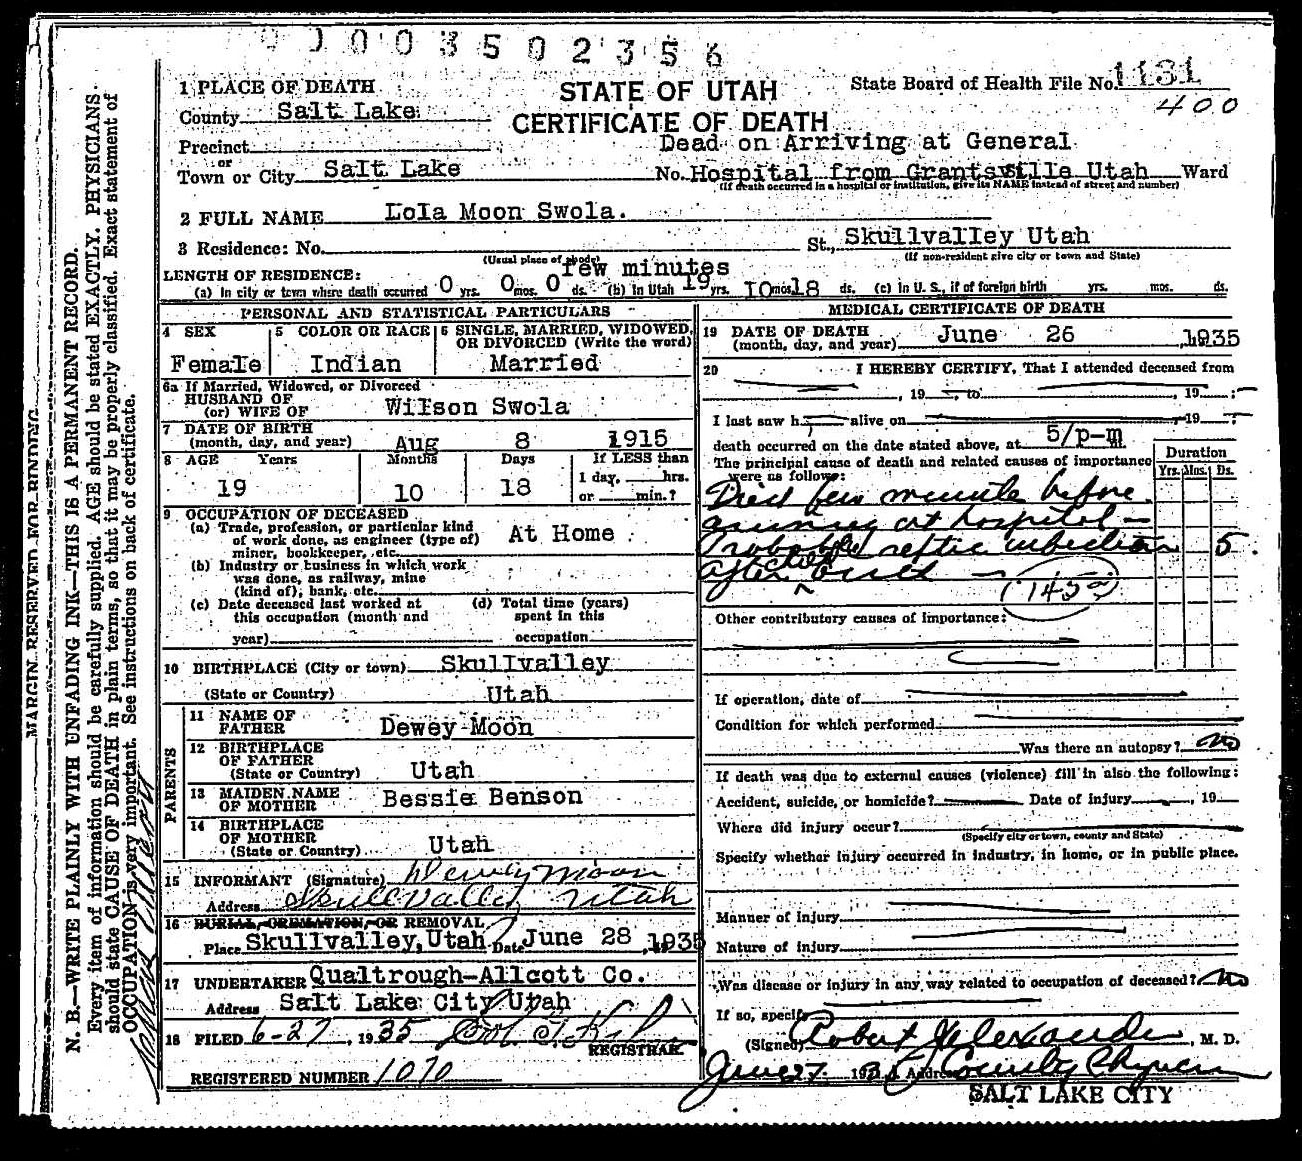 0 0 0 0 3 5 0 2 3 5 6
1 PLACE OF DEATH
STATE OF UTAH
State Board of Health File No. 1131
County Salt Lake
CERTIFICATE OF DEATH
400
Precinct
Dead on Arriving at General
or
Town or City Salt Lake No. Hospital from Grantsville Utah Ward
(If death occurred in a hospital or institution, give its NAME instead of street and number)
2 FULL NAME Lola Moon Swola.
3 Residence: No. St., Skullvalley Utah
(Usual place of abode) (If non-resident give city or town and State)
LENGTH OF RESIDENCE: few minutes
(a) In city or town where death occurred 0 yrs. 0 mos. 0 ds. (b) in Utah 19 yrs. 10 mos. 18 ds. (c) in U. S., if of foreign birth yrs. mos. ds.
PERSONAL AND STATISTICAL PARTICULARS
4 SEX Female
5 COLOR OR RACE Indian
6 SINGLE, MARRIED, WIDOWED,
OR DIVORCED (Write the word)
Married
6a If Married, Widowed, or Divorced
HUSBAND OF
(or) WIFE OF Wilson Swola
7 DATE OF BIRTH
(month, day, and year) Aug 8 1915
8 AGE Years Months Days If LESS than
19 10 18 1 day, hrs.
or min.?
9 OCCUPATION OF DECEASED
(a) Trade, profession, or particular kind
of work done, as engineer (type of) At Home
miner, bookkeeper, etc.
(b) Industry or business in which work
was done, as railway, mine
(kind of), bank, etc.
(c) Date deceased last worked at (d) Total time (years)
this occupation (month and spent in this
year) occupation
10 BIRTHPLACE (City or town) Skullvalley
(State or Country) Utah
PARENTS
11 NAME OF
FATHER Dewey Moon
12 BIRTHPLACE
OF FATHER
(State or Country) Utah
13 MAIDEN NAME
OF MOTHER Bessie Benson
14 BIRTHPLACE
OF MOTHER
(State or Country) Utah
15 INFORMANT (Signature) Dewey Moon
Address Skullvalley Utah
16 BURIAL, CREMATION, OR REMOVAL
Place Skullvalley, Utah Date June 28, 1935
17 UNDERTAKER Qualtrough-Allcott Co.
Address Salt Lake City Utah
18 FILED 6-27, 1935
REGISTRAR
REGISTERED NUMBER 1070
MEDICAL CERTIFICATE OF DEATH
19 DATE OF DEATH
(month, day, and year) June 26 1935
20 I HEREBY CERTIFY, That I attended deceased from
, 19 , to , 19 ;
I last saw h alive on 19 ;
death occurred on the date stated above, at 5/p-m
The principal cause of death and related causes of importance
were as follows:
Duration
Yrs. Mos. Ds.
Died few minute before
arriving at hospital —
Probably septic infection 5.
after child birth —
(145a)
Other contributory causes of importance:
If operation, date of
Condition for which performed
Was there an autopsy? No
If death was due to external causes (violence) fill in also the following:
Accident, suicide, or homicide? Date of injury , 19
Where did injury occur?
(Specify city or town, county and State)
Specify whether injury occurred in industry, in home, or in public place.
Manner of injury
Nature of injury
Was disease or injury in any way related to occupation of deceased? No
If so, specify
(Signed) Robert Alexander, M. D.
June 27 193 Address County Physician
SALT LAKE CITY
MARGIN RESERVED FOR BINDING
N. B.—WRITE PLAINLY WITH UNFADING INK—THIS IS A PERMANENT RECORD.
Every item of information should be carefully supplied. AGE should be stated EXACTLY. PHYSICIANS
should state CAUSE OF DEATH in plain terms, so that it may be properly classified. Exact statement of
OCCUPATION is very important. See instructions on back of certificate.